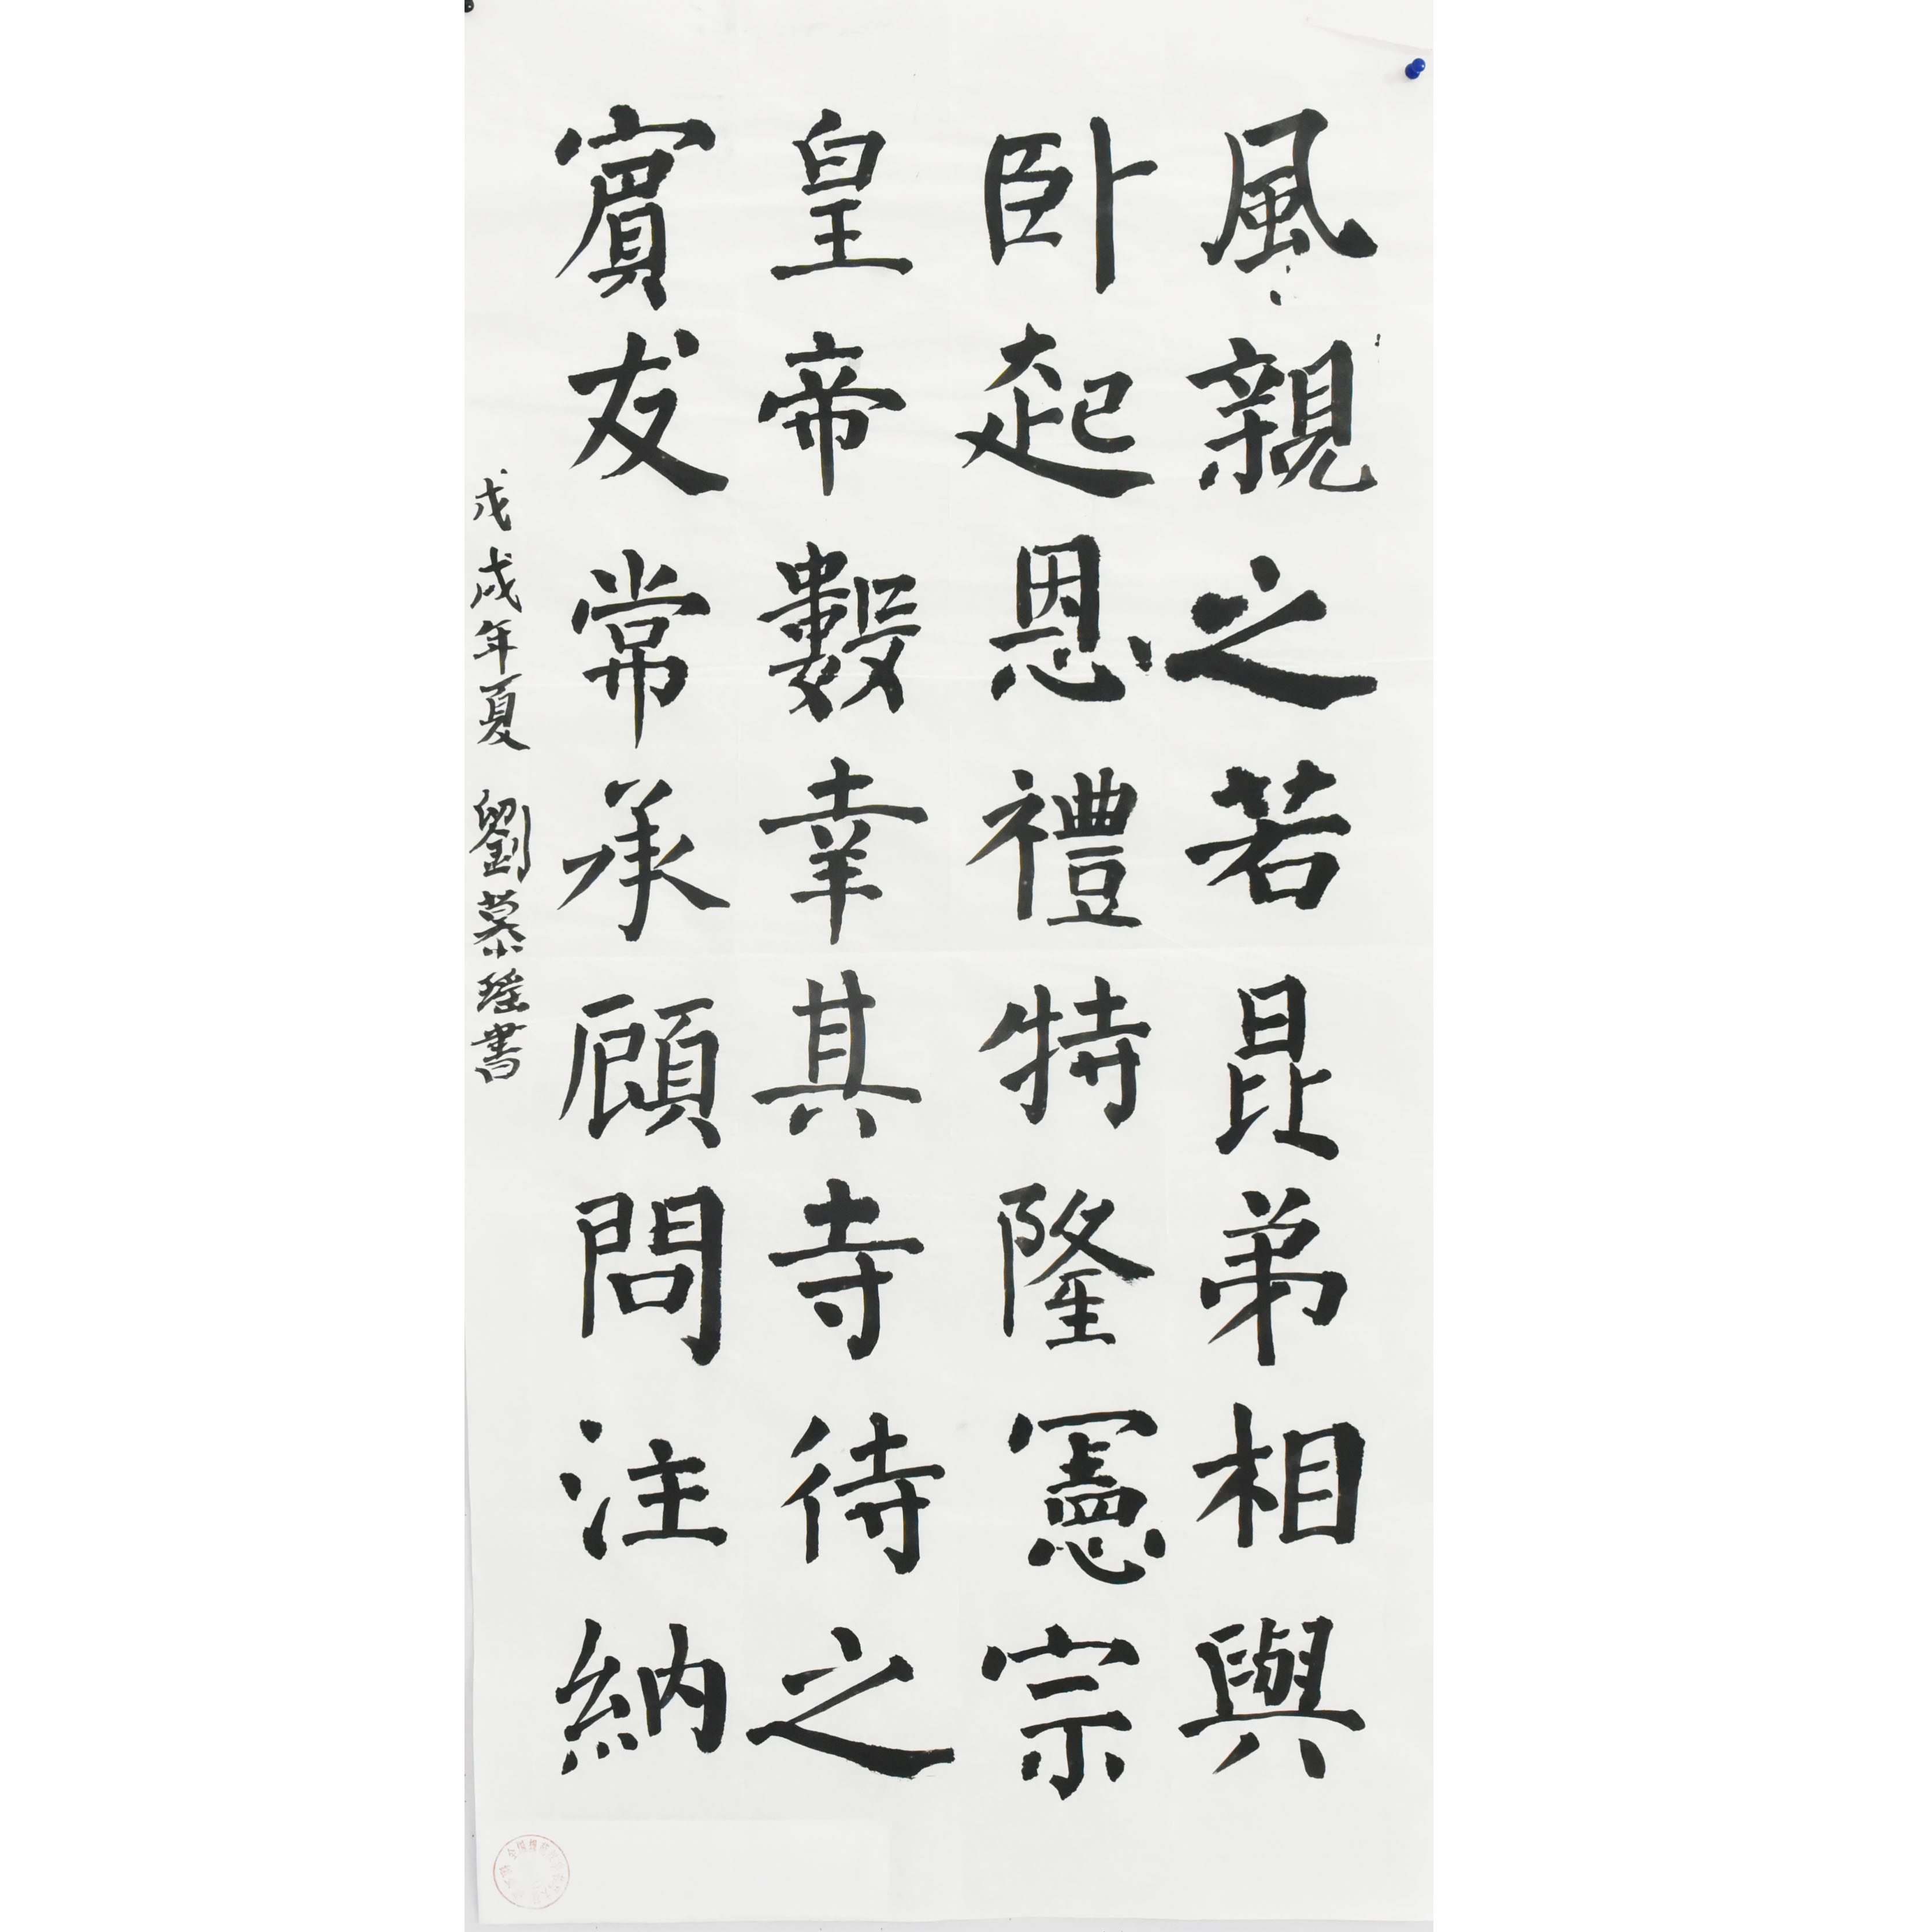 風親之若昆弟相與
卧起恩禮特隆憲宗
皇帝數幸其寺待之
賓友常承顧問注納
戊戌年夏 劉慕瑶書